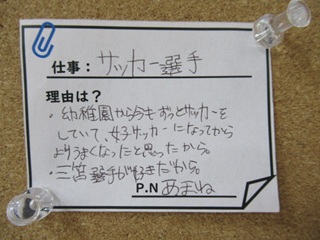 仕事：サッカー選手
理由は？
・幼稚園から今もずっとサッカーを
していて、女子サッカーになってから
よりうまくなったと思ったから。
・三笘選手が好きだから。
P.N あまね